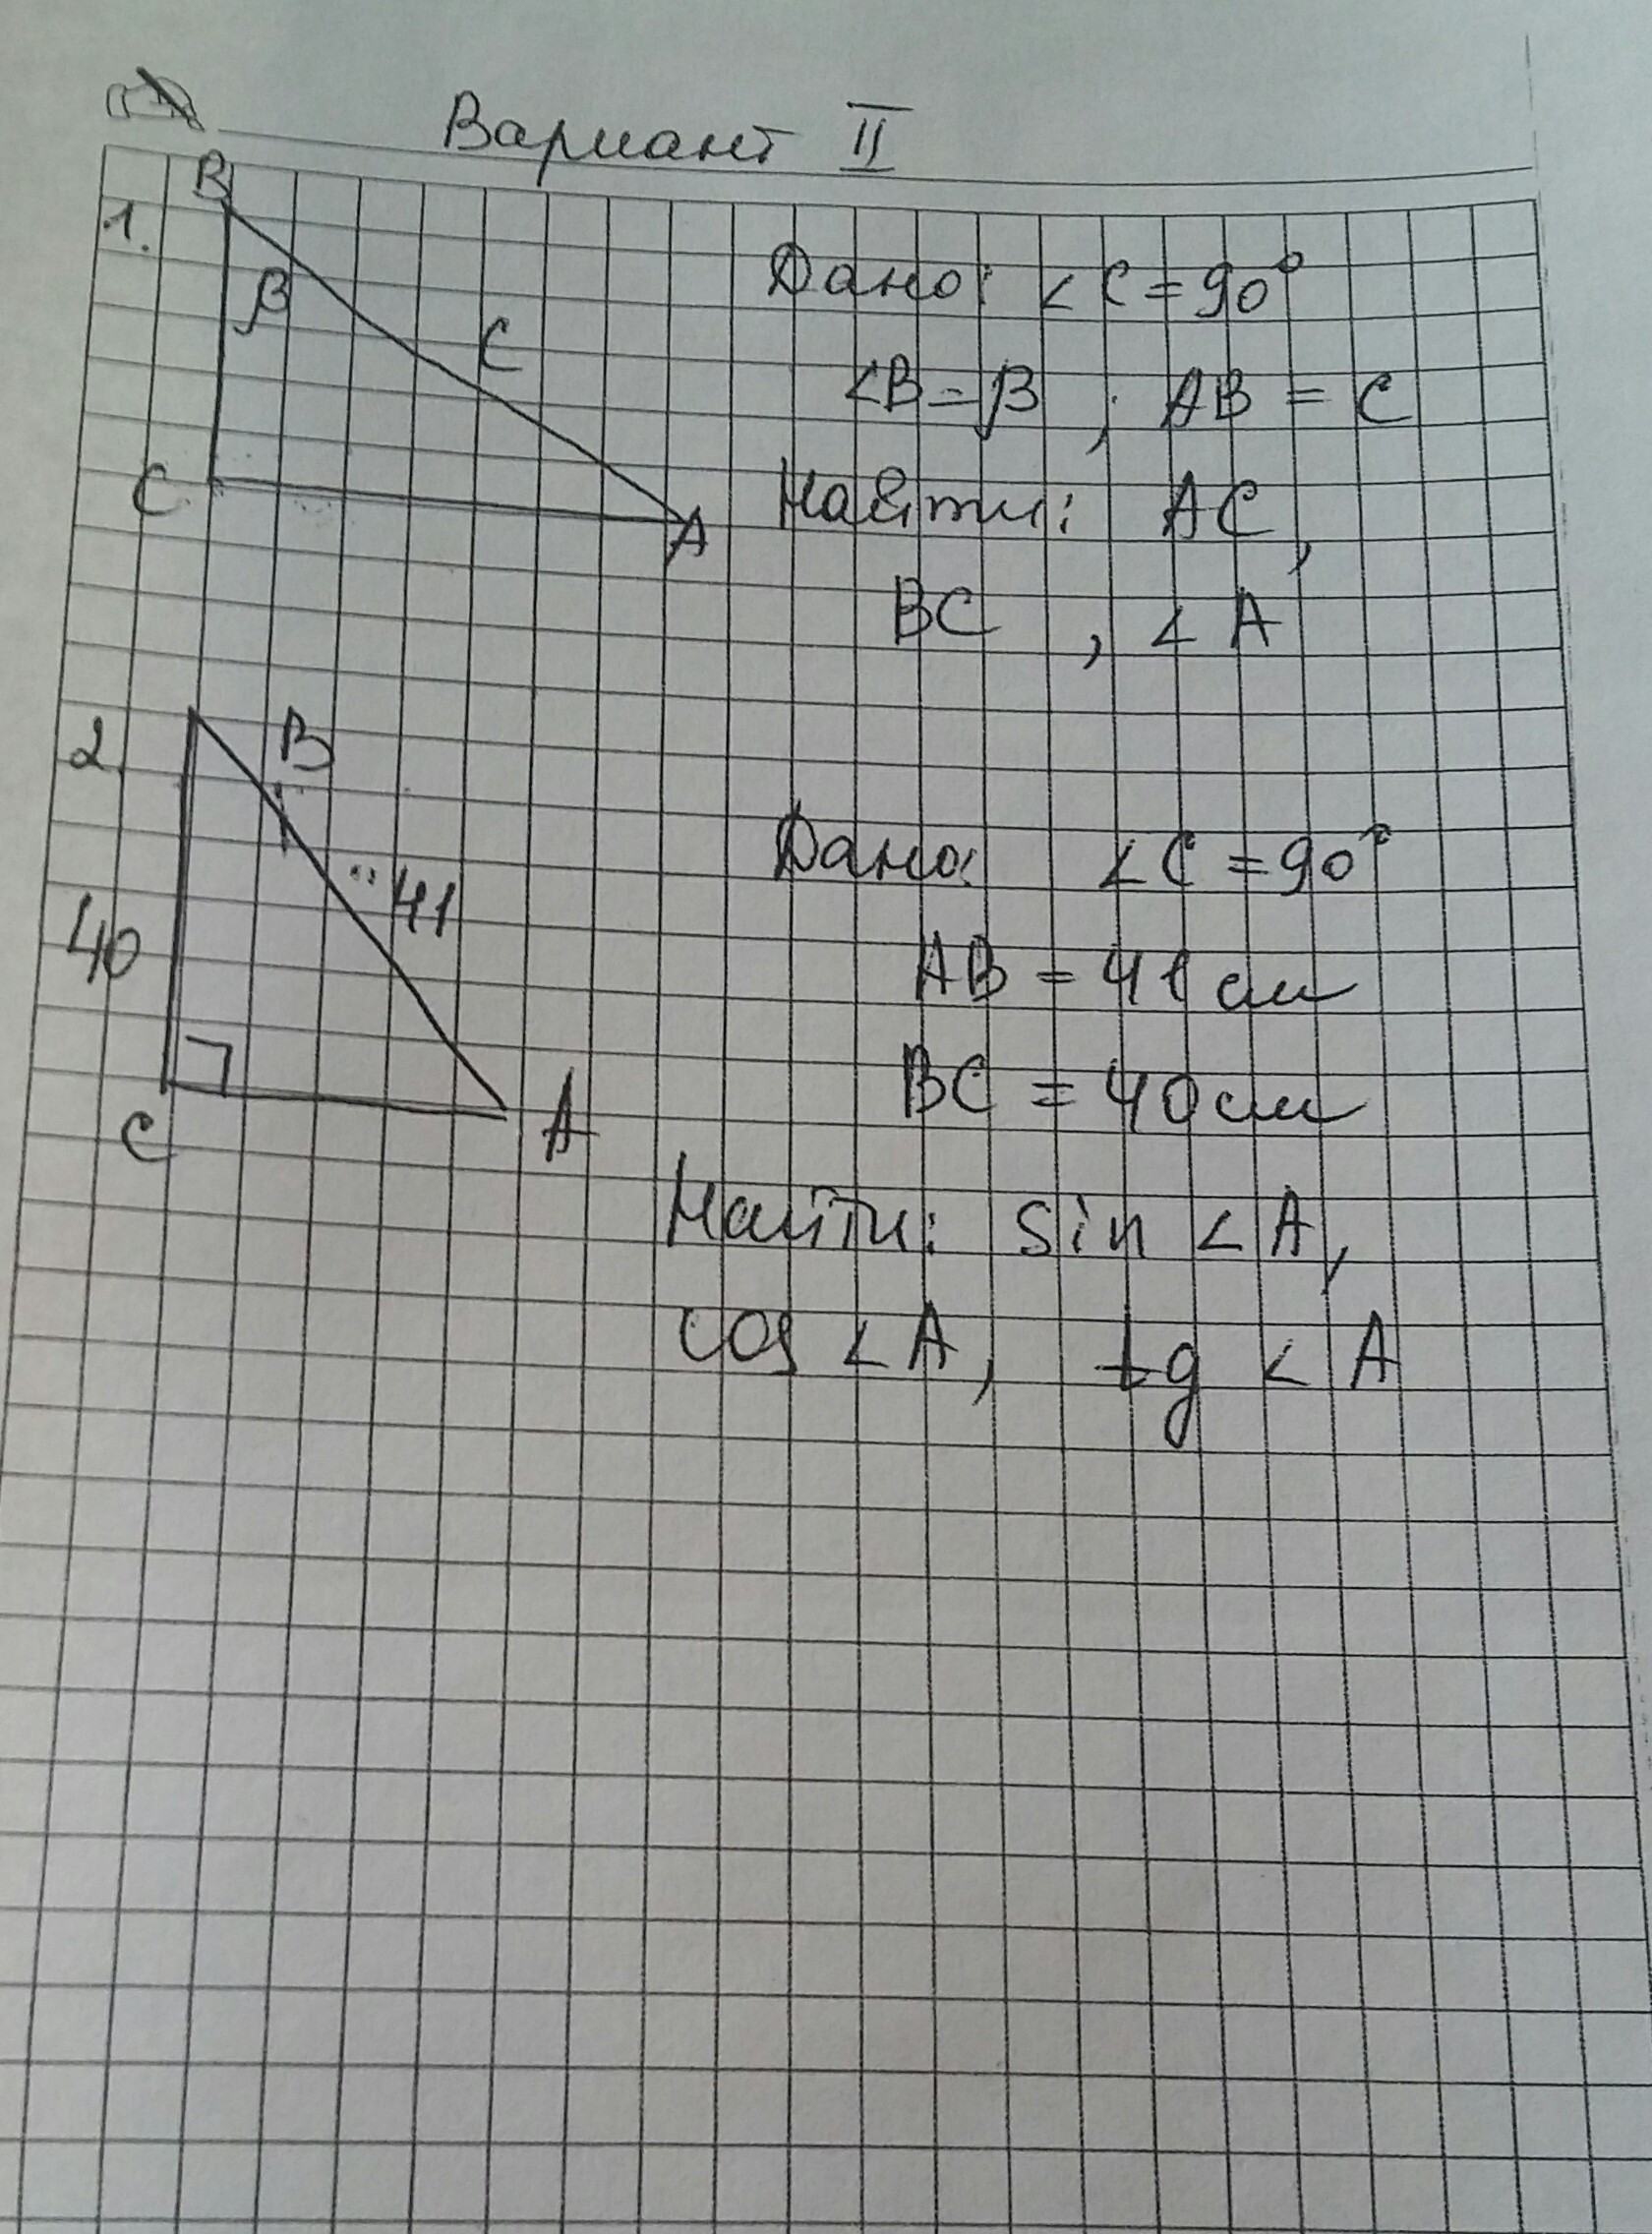 Вариант II
1.
B
β
C
C
A
Дано: <C=90°
<B=β, AB=C
Найти: AC,
BC, <A
2.
B
41
40
C
A
Дано: <C=90°
AB=41см
BC=40см
Найти: sin <A,
cos <A, tg <A